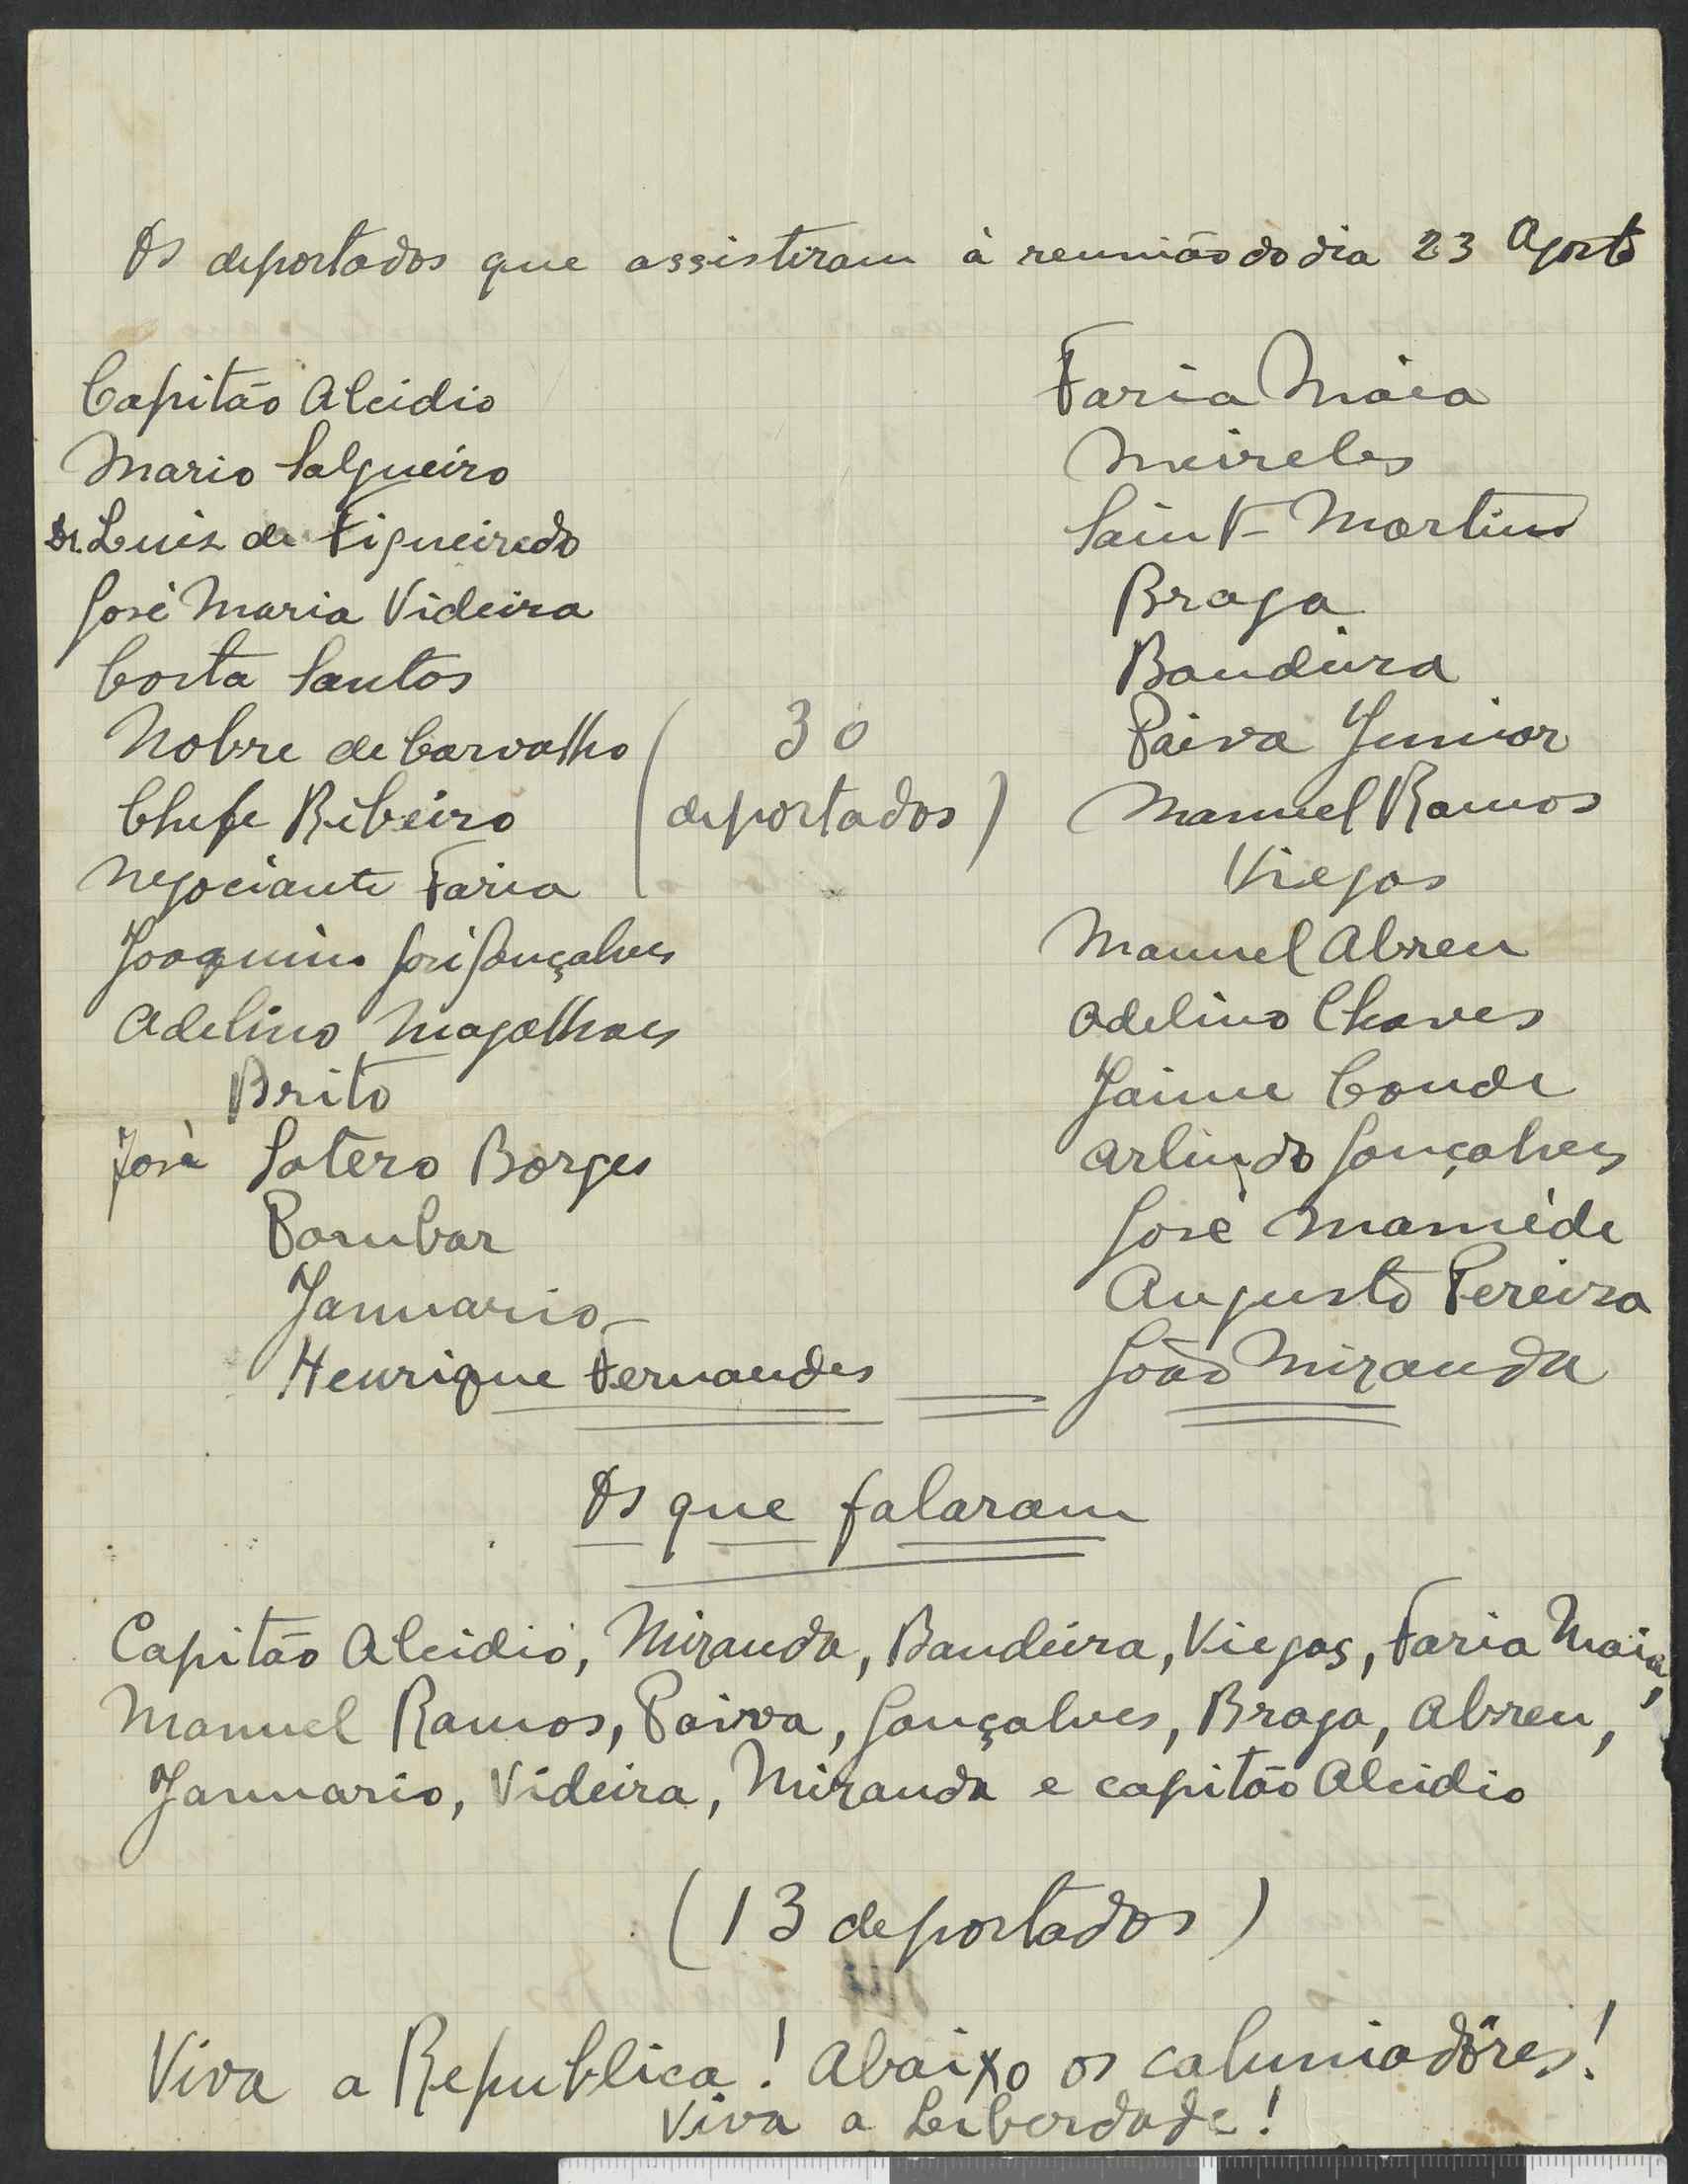 Os deportados que assistiram à reunião do dia 23 Agosto
Capitão Alcidio
Mario Salgueiro
Dr. Luis de Figueiredo
José Maria Videira
Costa Santos
Nobre de Carvalho
Chefe Ribeiro
Negociante Faria
Joaquim José Gonçalves
Adelino Magalhaes
Brito
José Sotero Borges
Pombar
Januario
Henrique Fernandes
(30
deportados)
Faria Maia
Meireles
Saint-Martins
Braga
Bandeira
Paiva Junior
Manuel Ramos
Viegas
Manuel Abreu
Adelino Chaves
Jaime Conde
Arlindo Gonçalves
José Maméde
Augusto Pereira
João Miranda
Os que falaram
Capitão Alcidio, Miranda, Bandeira, Viegas, Faria Maia,
Manuel Ramos, Paiva, Gonçalves, Braga, Abreu,
Januario, Videira, Miranda e capitão Alcidio
(13 deportados)
Viva a Republica! Abaixo os caluniadôres!
Viva a Leiberdade!